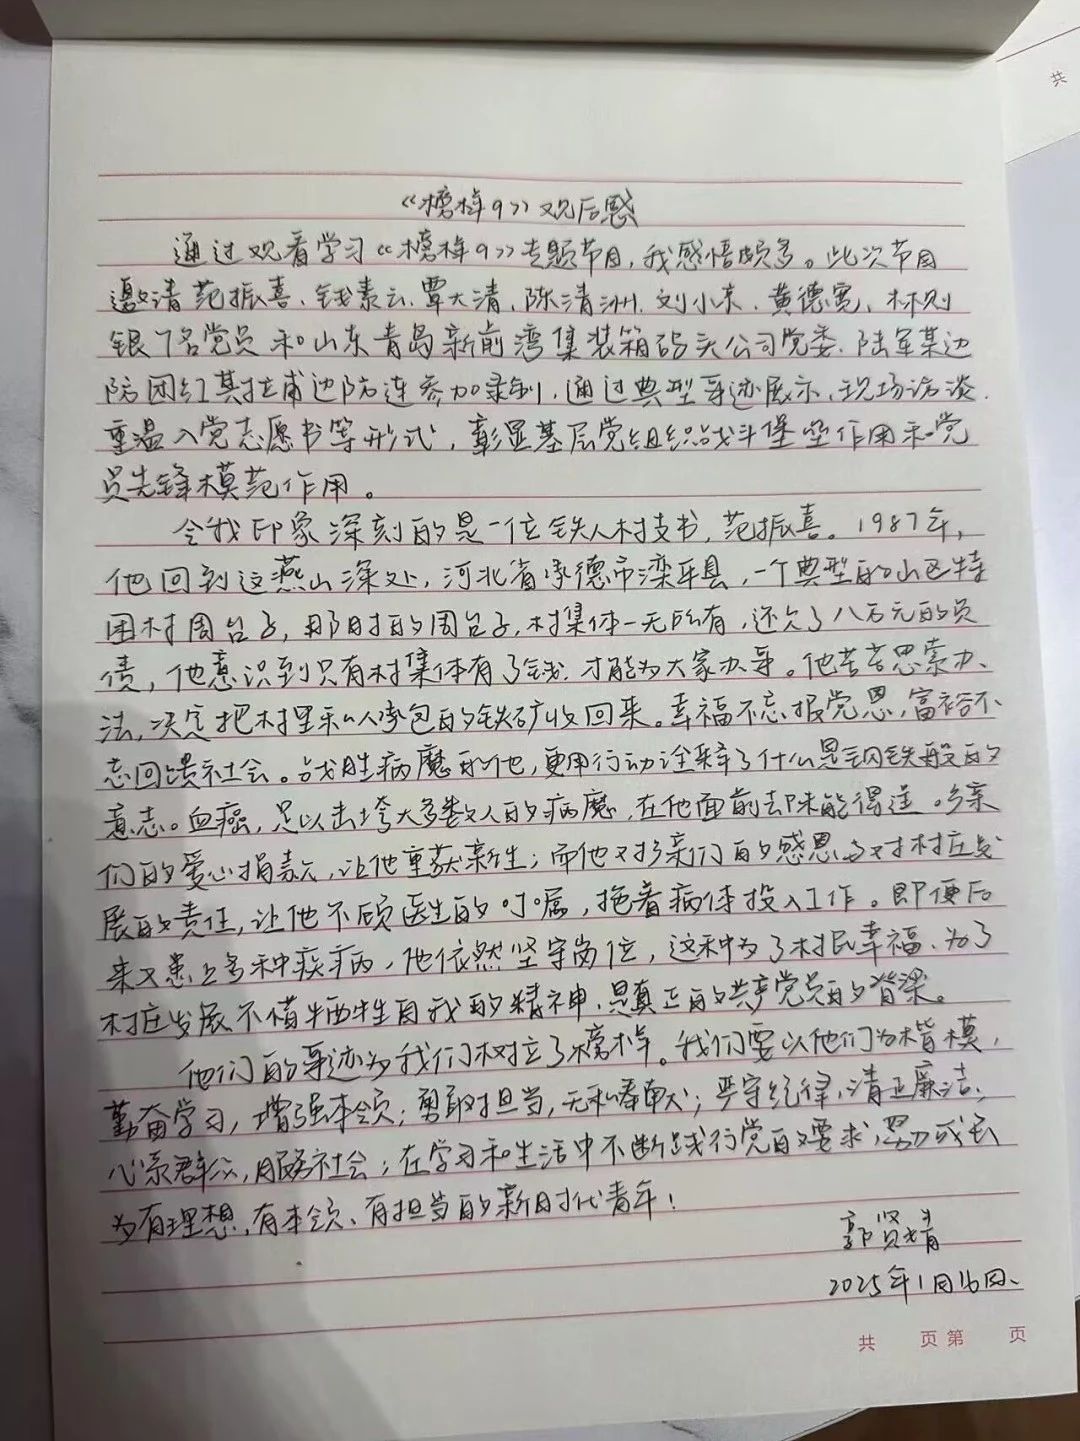 《榜样9》观后感
通过观看学习《榜样9》专题节目,我感悟颇多。此次节目
邀请范振喜、钱素云、覃大清、陈清洲、刘小东、黄德宽、林则
银7名党员和山东青岛新前湾集装箱码头公司党委、陆军某边
防团红其拉甫边防连参加录制,通过典型事迹展示、现场访谈、
重温入党志愿书等形式,彰显基层党组织战斗堡垒作用和党
员先锋模范作用。
令我印象深刻的是一位铁人村支书,范振喜。1987年,
他回到这燕山深处,河北省承德市滦平县,一个典型的山区特
困村周台子,那时的周台子,村集体一无所有,还欠了八万元的负
债,他意识到只有村集体有了钱,才能为大家办事。他苦苦思索办
法,决定把村里私人承包的铁矿收回来。幸福不忘报党恩,富裕不
忘回馈社会。战胜病魔的他,更用行动诠释了什么是钢铁般的
意志。血癌,足以击垮大多数人的病魔,在他面前去除能得逞。乡亲
们的爱心捐款,让他重获新生;而他对乡亲们的感恩与对村庄发
展的责任,让他不顾医生的叮嘱,拖着病体投入工作。即便后
来又患上多种疾病,他依然坚守岗位,这种为了村民幸福、为了
村庄发展不惜牺牲自我的精神,是真正的共产党员的脊梁。
他们的事迹为我们树立了榜样。我们要以他们为楷模,
勤奋学习,增强本领;勇敢担当,无私奉献;严守纪律,清正廉洁;
心系群众,服务社会;在学习和生活中不断践行党的要求,努力成长
为有理想、有本领、有担当的新时代青年!
郭贤婧
2025年1月16日、
共 页 第 页
共